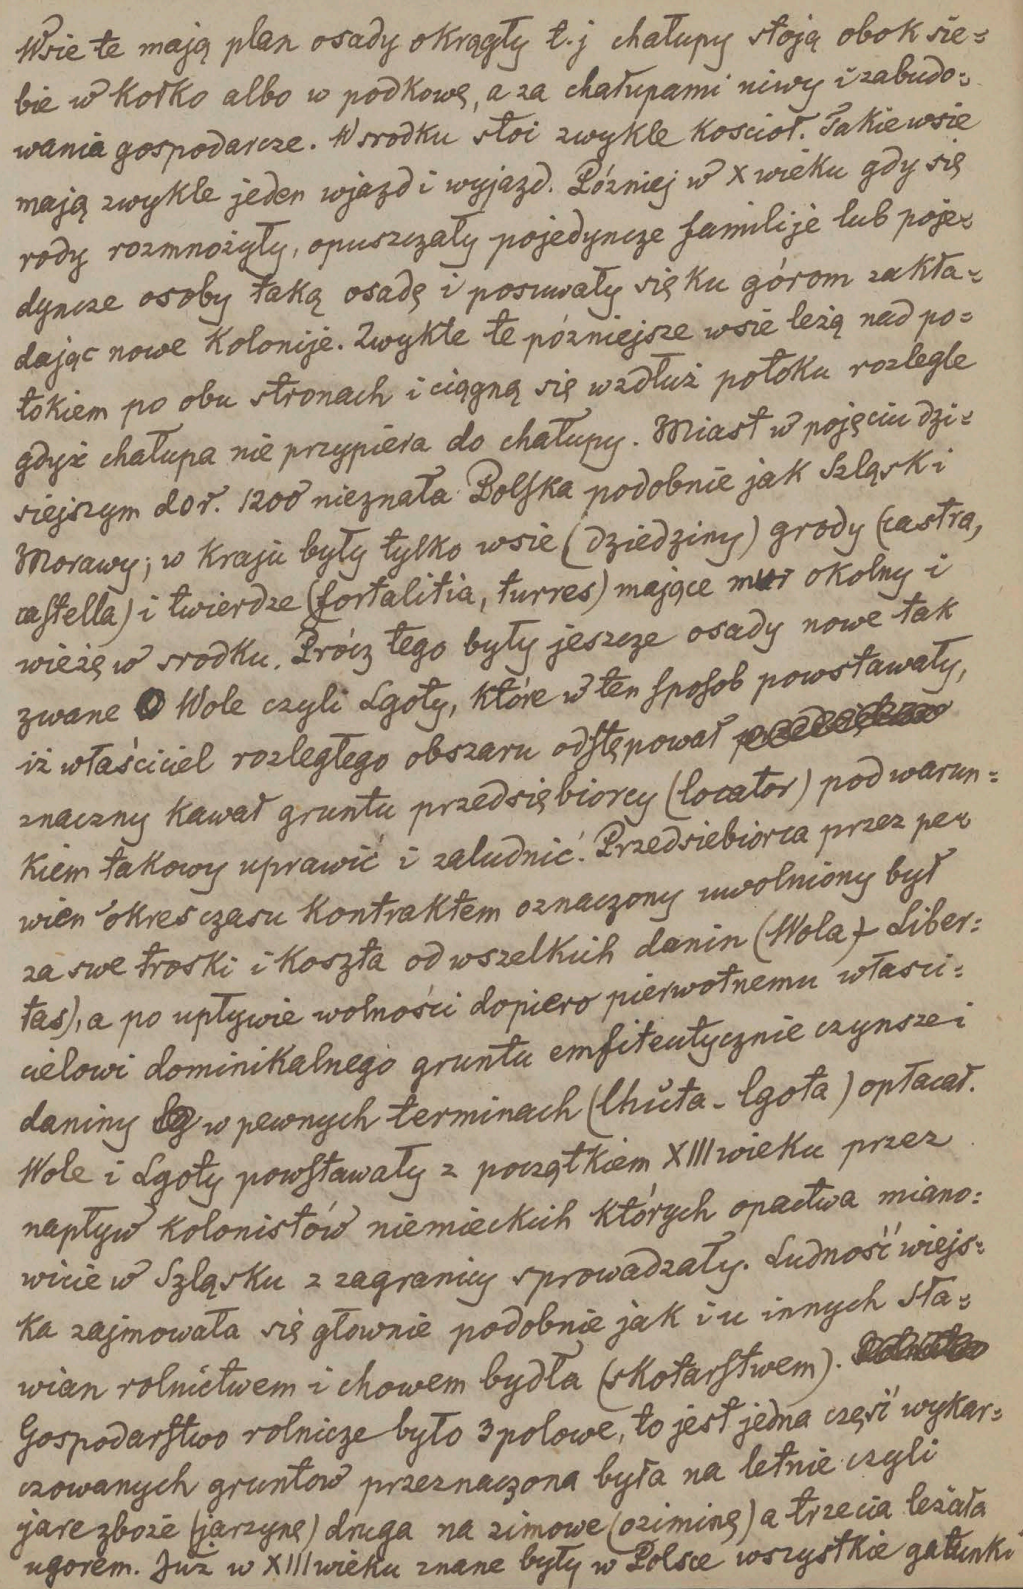 Wsie te mają plan osady okrągły t.j chałupy stoją obok sie=
bie w kołko albo w podkowę, a za chałupami niwy i zabudo=
wania gospodarcze. W srodku stoi zwykle kosciół. Takie wsie
mają zwykle jeden wjazd i wyjazd. Później w X wieku gdy się
rody rozmnożyły, opuszczały pojedyncze familije lub poje=
dyncze osoby taką osadę i posuwały się ku górom zakła=
dając nowe kolonije. Zwykle te pózniejsze wsie leżą nad po=
tokiem po obu stronach i ciągną się wzdłuż potoku rozlegle
gdyż chałupa nie przypiera do chałupy. Miast w pojęciu dzi=
siejszym do r. 1200 nieznała Polska podobnie jak Szląsk i
Morawy; w kraju były tylko wsie (dziedziny) grody (castra,
castella) i twierdze (fortalitia, turres) mające mur okolny i
wieżę w srodku. Prócz tego były jeszcze osady nowe tak
zwane Wole czyli Lgoty, które w ten sposob powstawały,
iż właściciel rozległego obszaru odstępował
znaczny kawał gruntu przedsiębiorcy (locator) pod warun=
kiem takowy uprawić i zaludnić. Przedsiebiorca przez pe=
wien okres czasu kontraktem oznaczony uwolniony był
za swe troski i koszta od wszelkich danin (Wola - Liber=
tas), a po upływie wolności dopiero pierwotnemu właści=
cielowi dominikalnego gruntu emfiteutycznie czynsze i
daniny w pewnych terminach (lhůta - lgota) opłacał.
Wole i Lgoty powstawały z początkiem XIII wieku przez
napływ kolonistów niemieckich których opactwa miano=
wicie w Szląsku z zagranicy sprowadzały. Ludność wiejs=
ka zajmowała się głownie podobnie jak i u innych Sła=
wian rolnictwem i chowem bydła (skotarstwem).
Gospodarstwo rolnicze było 3 polowe, to jest jedna część wykar=
czowanych gruntów przeznaczona była na letnie czyli
jare zboże (jarzynę) druga na zimowe (oziminę) a trzecia leżała
ugorem. Już w XIII wieku znane były w Polsce wszystkie gatunki